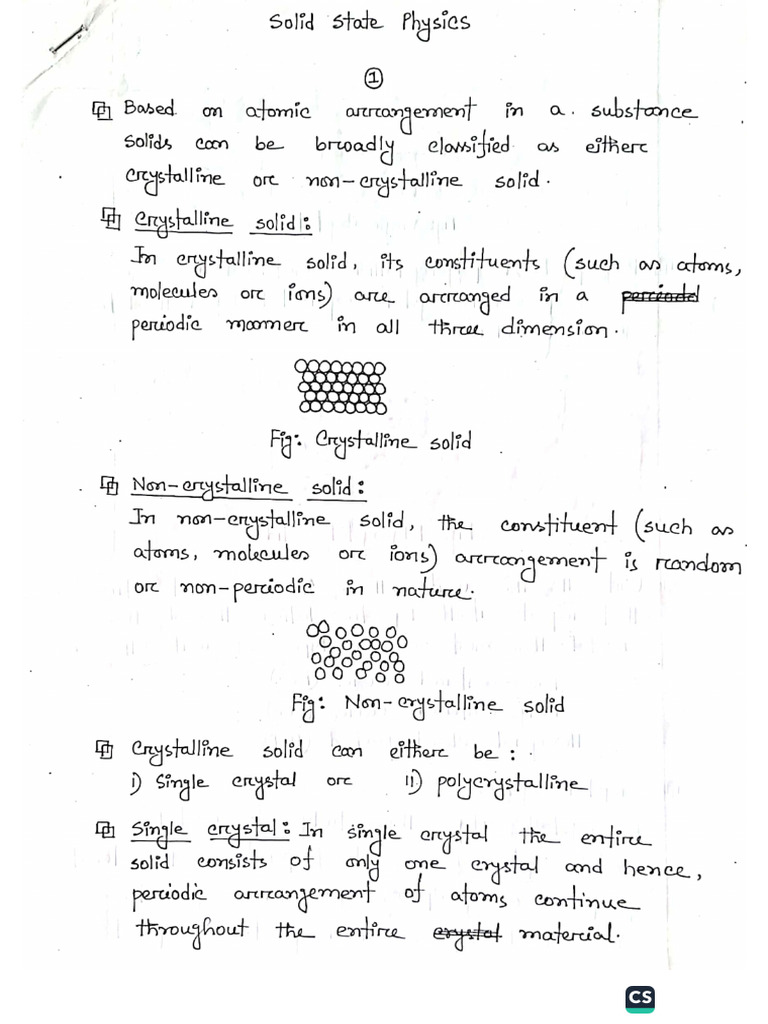 Solid State Physics
①
Based on atomic arrangement in a substance
solids can be broadly classified as either
crystalline or non-crystalline solid.
Crystalline solid:
In crystalline solid, its constituents (such as atoms,
molecules or ions) are arranged in a ~~periodd~~
periodic manner in all three dimension.
Fig: Crystalline solid
Non-crystalline solid:
In non-crystalline solid, the constituent (such as
atoms, molecules or ions) arrangement is random
or non-periodic in nature.
Fig: Non-crystalline solid
Crystalline solid can either be:
i) Single crystal or ii) polycrystalline
Single crystal: In single crystal the entire
solid consists of only one crystal and hence,
periodic arrangement of atoms continue
throughout the entire ~~crystal~~ material.
CS